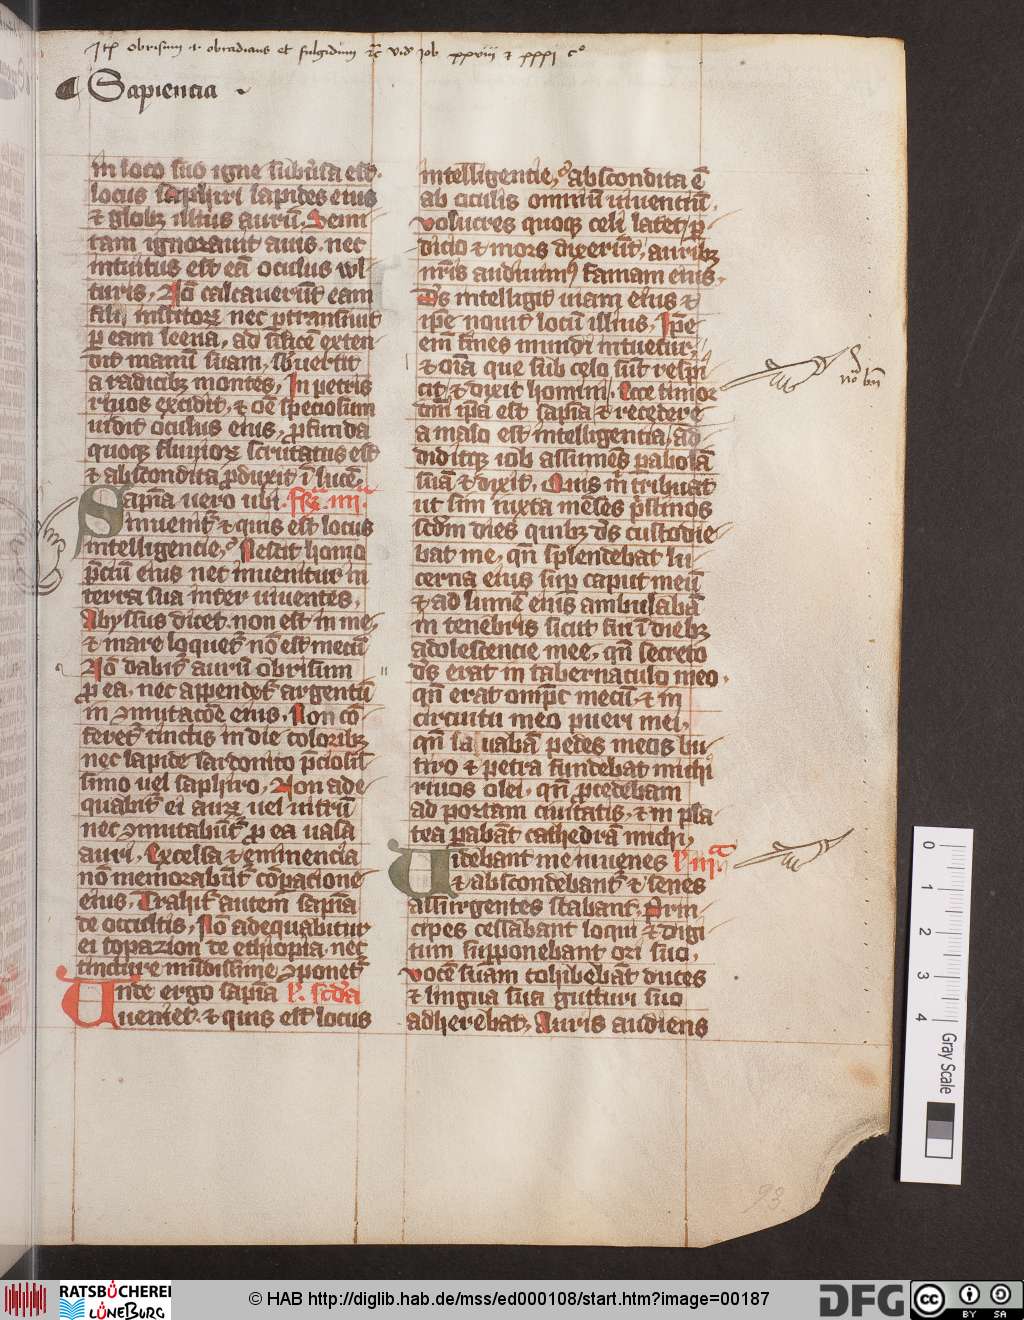 Itē obrisum .i. obradians et fulgidum &c̄ vid̄ Job xxviii & xxxi c°
Sapiencia .
in loco suo igne subūsa est.
locus saphiri lapides eius
& globꝫ illius aurū. Semi
tam ignorauit auis. nec
intuitus est eā oculus vl
turis. Nō calcauerūt eam
filij institorꝝ nec ꝑtransiuit
ꝑ eam leena. ad silicē exten
dit manū suam. sbuertit
a radicibꝫ montes. In petris
riuos excidit. & oē speciosum
uidit oculus eius. ꝓfunda
quoqꝫ fluuiorꝝ scrutatus est
& abscondita ꝓduxit ī lucē.
Sapiīa uero ubi
inuenit̄ & quis est locus
intelligencie. Nescit homo
p̄ciū eius nec inuenitur in
terra sua inter uiuentes.
Abyssus dicet. non est in me.
& mare loquet̄ nō est mecū
Nō dabit̄ aurū obrisum
ꝓ ea. nec appendet̄ argentū
in ꝯmutacōe eius. Non cō
feret̄ tinctis indie coloribꝫ
nec lapide sardonico p̄ciosis
simo uel saphiro. Non ade
quabit̄ ei aurꝫ uel uitrū
nec ꝯmutabūt̄ ꝓ ea uasa
auri. Excelsa & eminencia
nō memorabūt̄ cōpacione
eius. Trahit̄ autem sapiīa
de occultis. Nō adequabitur
ei topazion de ethiopia. nec
tincture mūdissime ꝯponet̄
Unde ergo sapiīa l'. scd̄a
ueniet. & quis est locus
intelligencie. abscondita ē
ab oculis omniū uiuentiū.
volucres quoqꝫ celi latet. ꝑ
dicio & mors dixerūt. auribꝫ
nr̄is audiuimꝰ famam eius.
Dꝰs intelligit uiam eius &
ip̄e nouit locū illius. Ip̄e
eī fines mundi intuetur.
& oīa que sub celo sūt respi
cit. & dixit homini. Ecce timor
dn̄i ip̄a est sapīa & recedere
a malo est intelligencia. ad
diditqꝫ iob assumēs ꝑabolā
suā & dixit. Quis m tribuat
ut sim iuxta mēses p̄stinos
scd̄m dies quibꝫ dꝰs custodie
bat me. qn̄ splendebat lu
cerna eius suꝑ caput meū
& ad lumē eius ambulabā
in tenebris sicut fui ī diebꝫ
adolescencie mee. qn̄ secreto
dꝰs erat in tabernaculo meo.
qn̄ erat omp̄c mecū. & in
circuitu meo pueri mei.
qn̄ lauabā pedes meos bu
tiro & petra fundebat michi
riuos olei. qn̄ ꝓcedebam
ad portam ciuitatis. & in pla
tea ꝑabāt cathedrā michi.
Uidebant me iuuenes l' iij.ᵃ
& abscondebant̄ & senes
assurgentes stabant. Prin
cipes cessabant loqui & digi
tum supponebant ori suo.
vocē suam cohibebāt duces
& lingua sua gutturi suo
adherebat. Auris audiens
93
0 1 2 3 4 Gray Scale
RATSBÜCHEREI LÜNEBURG
© HAB http://diglib.hab.de/mss/ed000108/start.htm?image=00187
DFG
cc BY SA